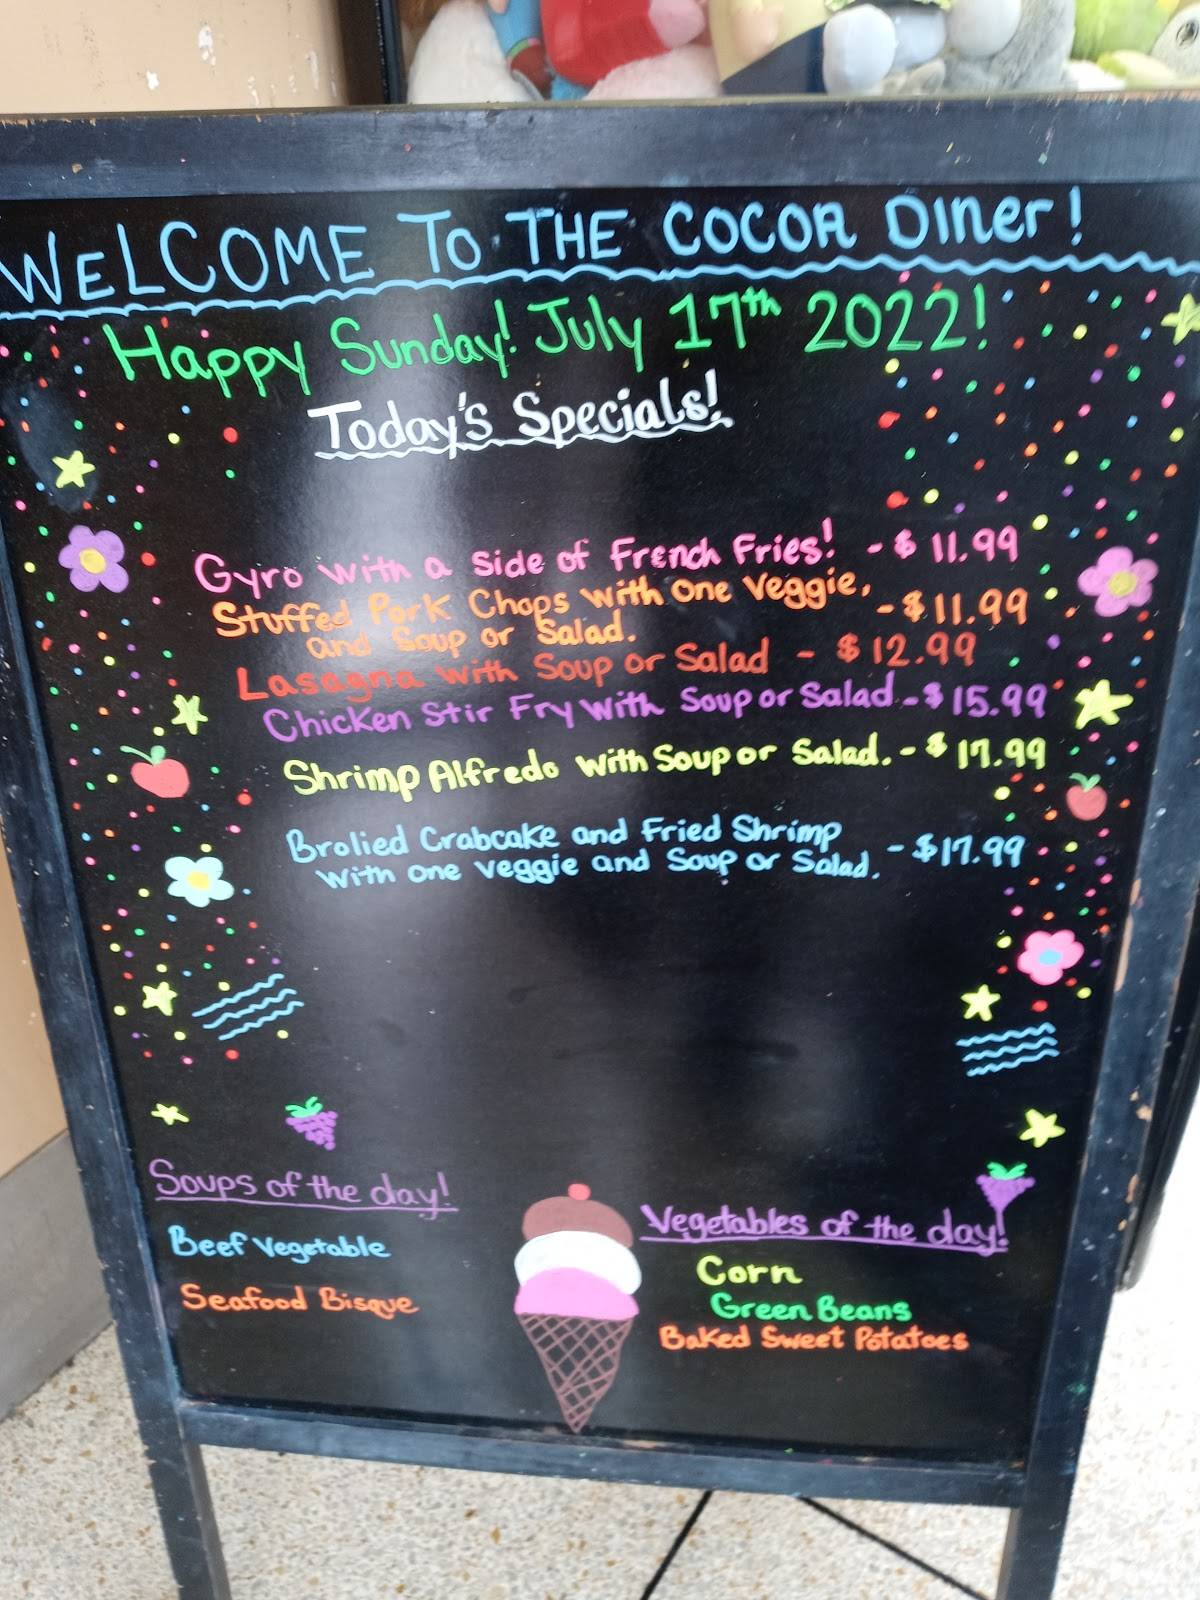 WELCOME TO THE COCOA DINer!
Happy Sunday! July 17th 2022!
Today's Specials!
Gyro with a side of French Fries! - $ 11.99
Stuffed Pork Chops with One Veggie, - $11.99
and Soup or Salad.
Lasagna with Soup or Salad - $12.99
Chicken Stir Fry with Soup or Salad - $15.99
Shrimp Alfredo with Soup or Salad. - $ 17.99
Brolied Crabcake and Fried Shrimp - $17.99
with one veggie and Soup or Salad.
Soups of the day!
Beef Vegetable
Seafood Bisque
Vegetables of the day!
Corn
Green Beans
Baked Sweet Potatoes